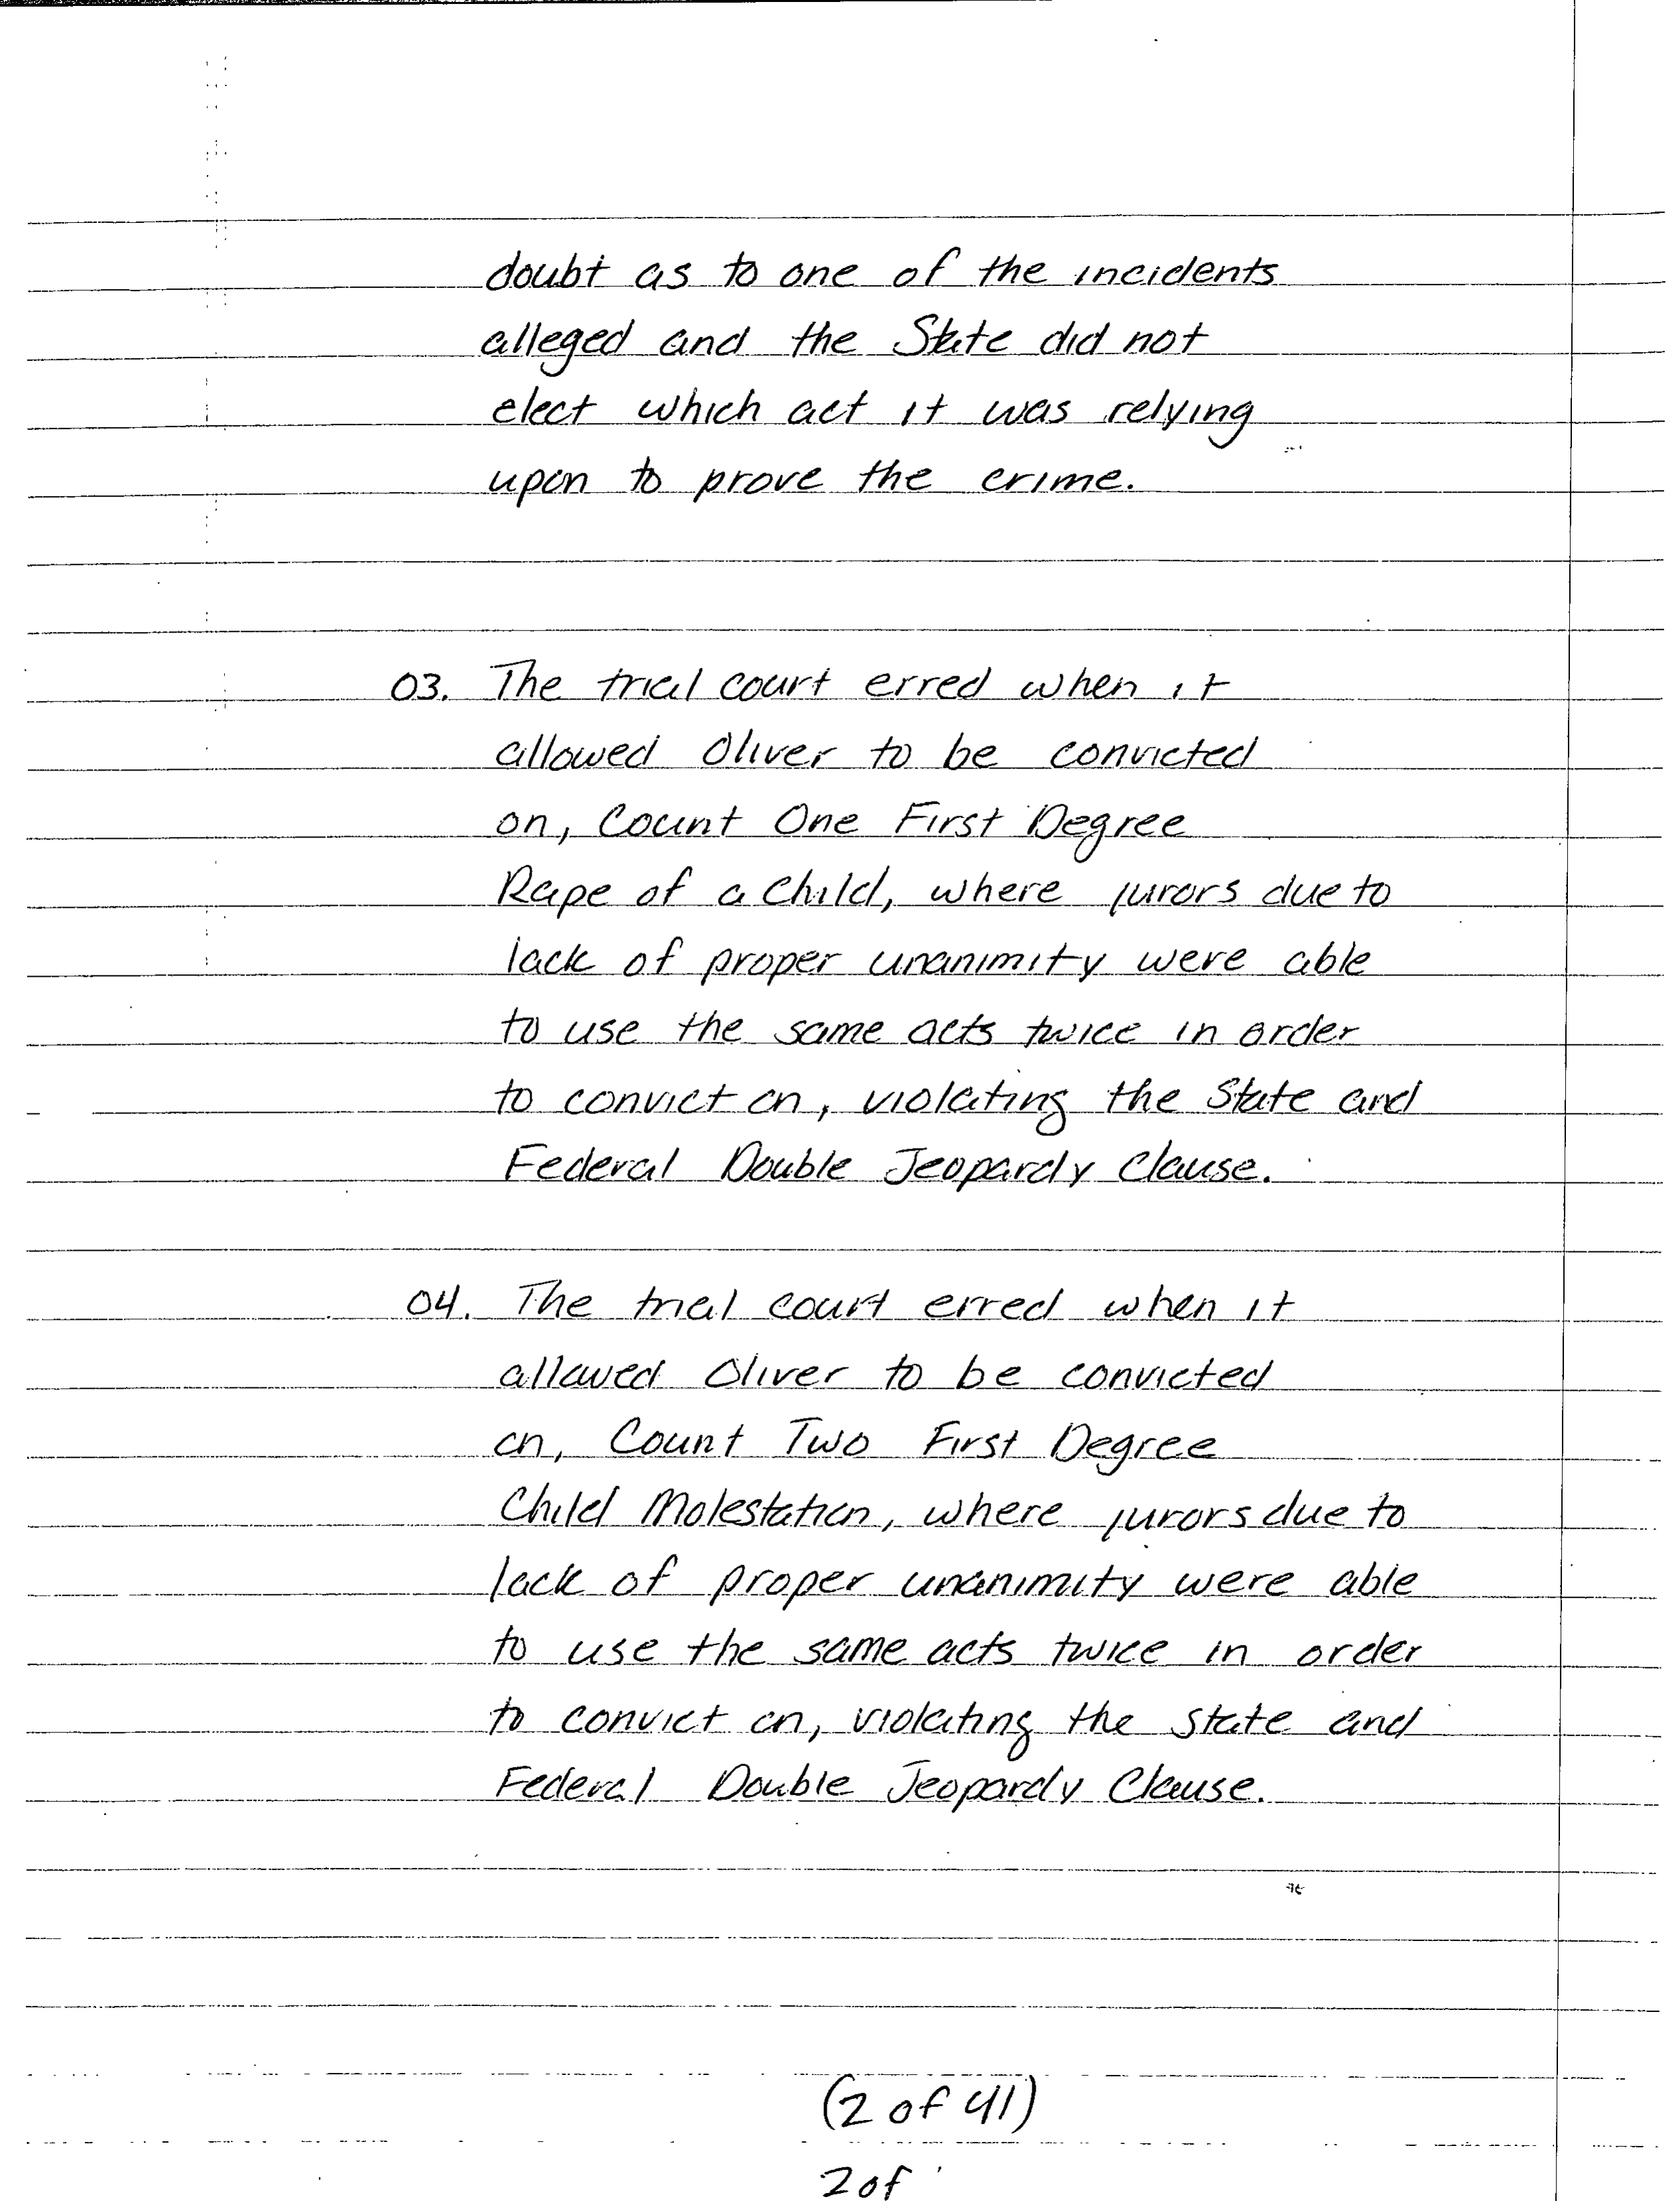 doubt as to one of the incidents
alleged and the State did not
elect which act it was relying
upon to prove the crime.
03. The trial court erred when it
allowed Oliver to be convicted
on, Count One First Degree
Rape of a Child, where jurors due to
lack of proper unanimity were able
to use the same acts twice in order
to convict on, violating the State and
Federal Double Jeopardy Clause.
04. The trial court erred when it
allowed Oliver to be convicted
on, Count Two First Degree
Child Molestation, where jurors due to
lack of proper unanimity were able
to use the same acts twice in order
to convict on, violating the state and
Federal Double Jeopardy Clause.
(2 of 41)
2 of